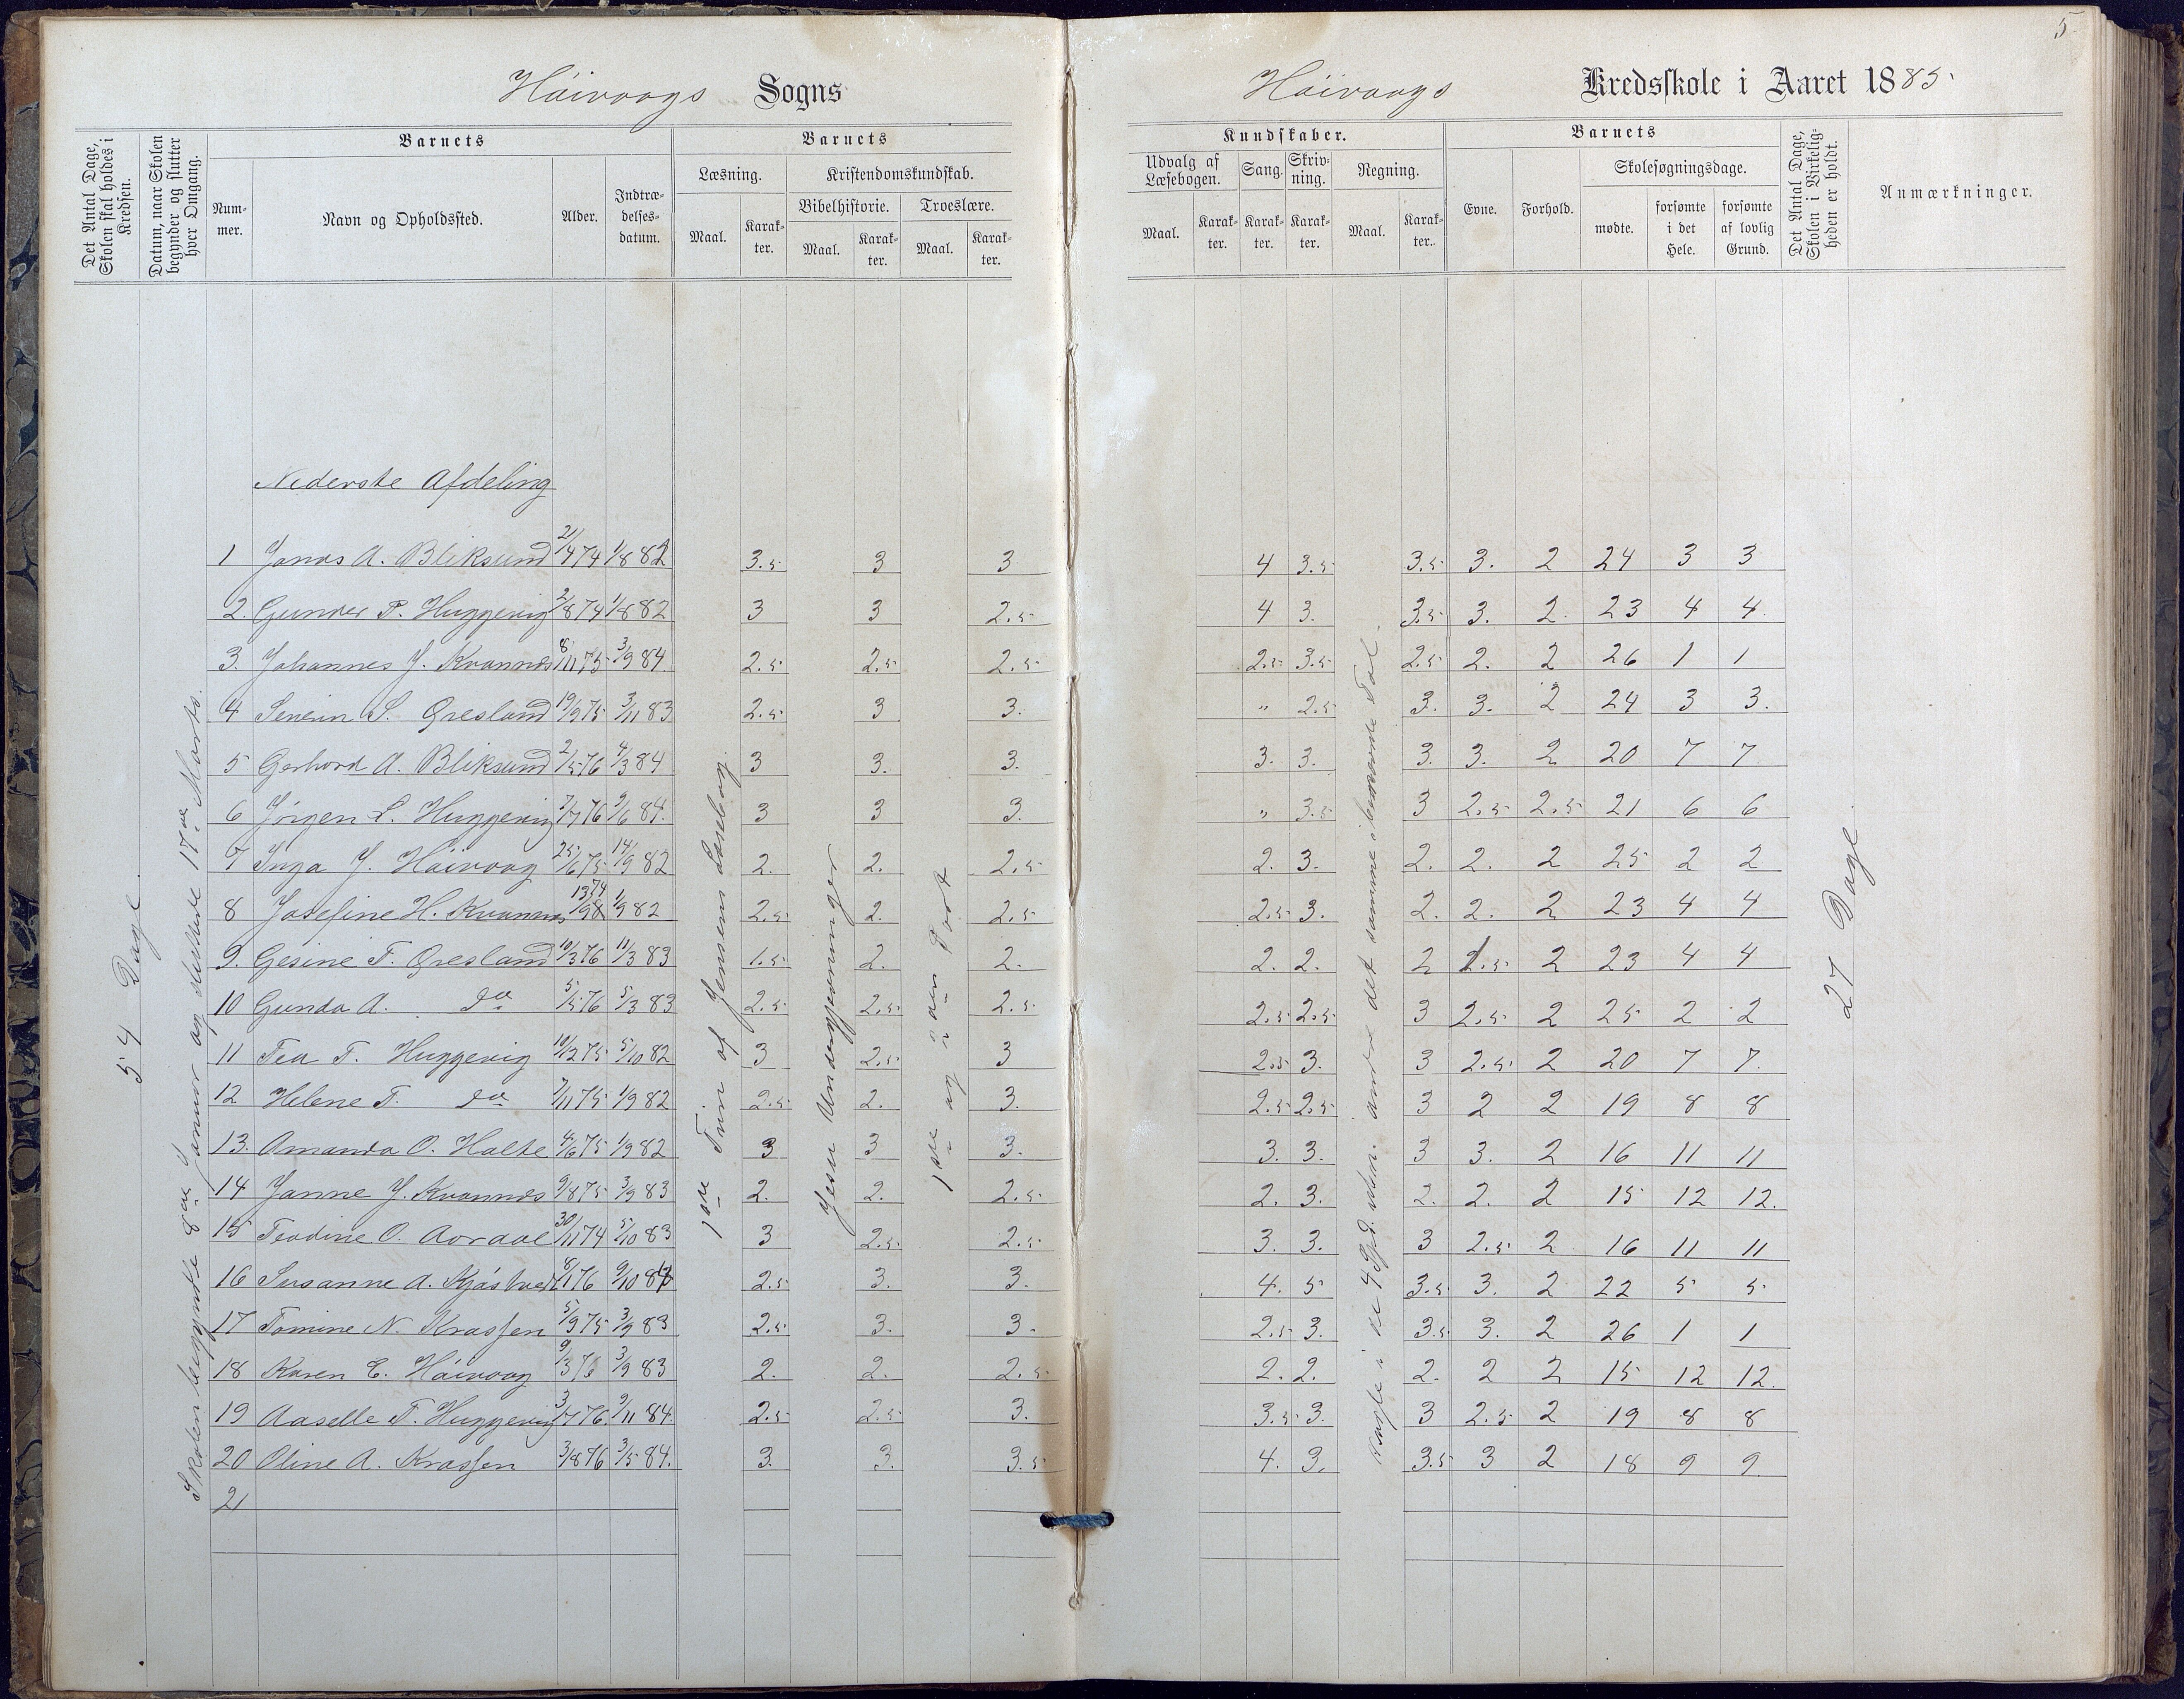 5
Höivaags Sogns
Höivaags Kredsskole i Aaret 1885
Det Antal Dage, Skolen skal holdes i Kredsen.
Datum, naar Skolen begynder og slutter hver Omgang.
Barnets
Barnets
Kundskaber.
Barnets
Det Antal Dage, Skolen i Virkeligheden er holdt.
Anmærkninger.
Nummer.
Navn og Opholdssted.
Alder.
Indtrædelsesdatum.
Læsning.
Kristendomskundskab.
Bibelhistorie.
Troeslære.
Maal.
Karakter.
Maal.
Karakter.
Maal.
Karakter.
Udvalg af Læsebogen.
Sang.
Skrivning.
Regning.
Maal.
Karakter.
Karakter.
Karakter.
Maal.
Karakter.
Evne.
Forhold.
Skolesøgningsdage.
mødte.
forsømte i det Hele.
forsømte af lovlig Grund.
54 Dage
Skolen begyndte 8de Januar og sluttede 17de Marts.
1ste Trin af Jensens Læsebog
Jesu Undergjerninger
1ste og 2den Part
27 Dage
Nederste Afdeling
1 Jonas A. Bliksund 21/4 74 1/8 82 3.5 3 3 4 3.5 3.5 3. 2 24 3 3
2. Gunder P. Huggevig 2/8 74 1/8 82 3 3 2.5 4 3. 3.5 3. 2. 23 4 4.
3. Johannes J. Kvannes 8/11 75 3/9 84 2.5 2.5 2.5 2.5 3.5 2.5 2. 2 26 1 1
4 Senein S. Qresland 19/9 75 3/11 83 2.5 3 3. " 2.5 3. 3. 2 24 3 3.
5 Gerhard A. Bliksund 2/5 76 4/3 84 3 3. 3. 3. 3. 3. 3. 2 20 7 7
6 Jörgen L. Huggevig 7/7 76 9/6 84. 3 3 3. " 3.5 3 2.5 2.5 21 6 6
7 Inga J. Höivaag 25/6 75 14/9 82 2. 2. 2.5 2. 3. 2. 2. 2 25 2 2
8 Josefine H. Kvannes 13/9 74 1/9 82 2.5 2. 2.5 2.5 3. 2. 2. 2 23 4 4
9. Gesine T. Qresland 10/3 76 11/3 83 1.5 2. 2. 2. 2. 2 2.5 2 23 4 4
10 Gunda A. do 5/5 76 5/3 83 2.5 2.5 2.5 2.5 2.5 3 2.5 2 25 2 2
11 Tea T. Huggevig 10/12 75 5/10 82 3 2.5 3 2.5 3. 3 2.5 2 20 7 7.
12 Helene T. do 7/11 75 1/9 82 2.5 2. 3. 2.5 2.5 3 2 2 19 8 8
13. Amanda O. Holte 4/6 75 1/9 82 3 3 3. 3. 3. 3 3. 2 16 11 11
14 Janne J. Kvannes 9/8 75 3/9 83 2. 2. 2.5 2. 3. 2. 2. 2 15 12 12.
15 Teodine O. Aoraal 30/11 74 5/10 83 3 2.5 2.5 3. 3. 3 2.5 2 16 11 11
16 Susanne A. Kjöstved 8/1 76 9/10 84 2.5 3. 3. 4. 5 3.5 3. 2 22 5 5
17 Tomine N. Krossen 5/9 75 3/9 83 2.5 3. 3. 2.5 3. 3.5 3. 2 26 1 1
18 Karen E. Höivaag 9/3 76 3/9 83 2. 2. 2.5 2. 2. 2. 2 2 15 12 12.
19 Aaselle T. Huggevig 3/7 76. 9/11 84. 2.5 2.5 3. 3.5 3. 3 2.5 2 19 8 8
20 Oline A. Krossen 3/8 76 3/5 84. 3. 3. 3.5 4. 3. 3.5 3 2 18 9 9.
21